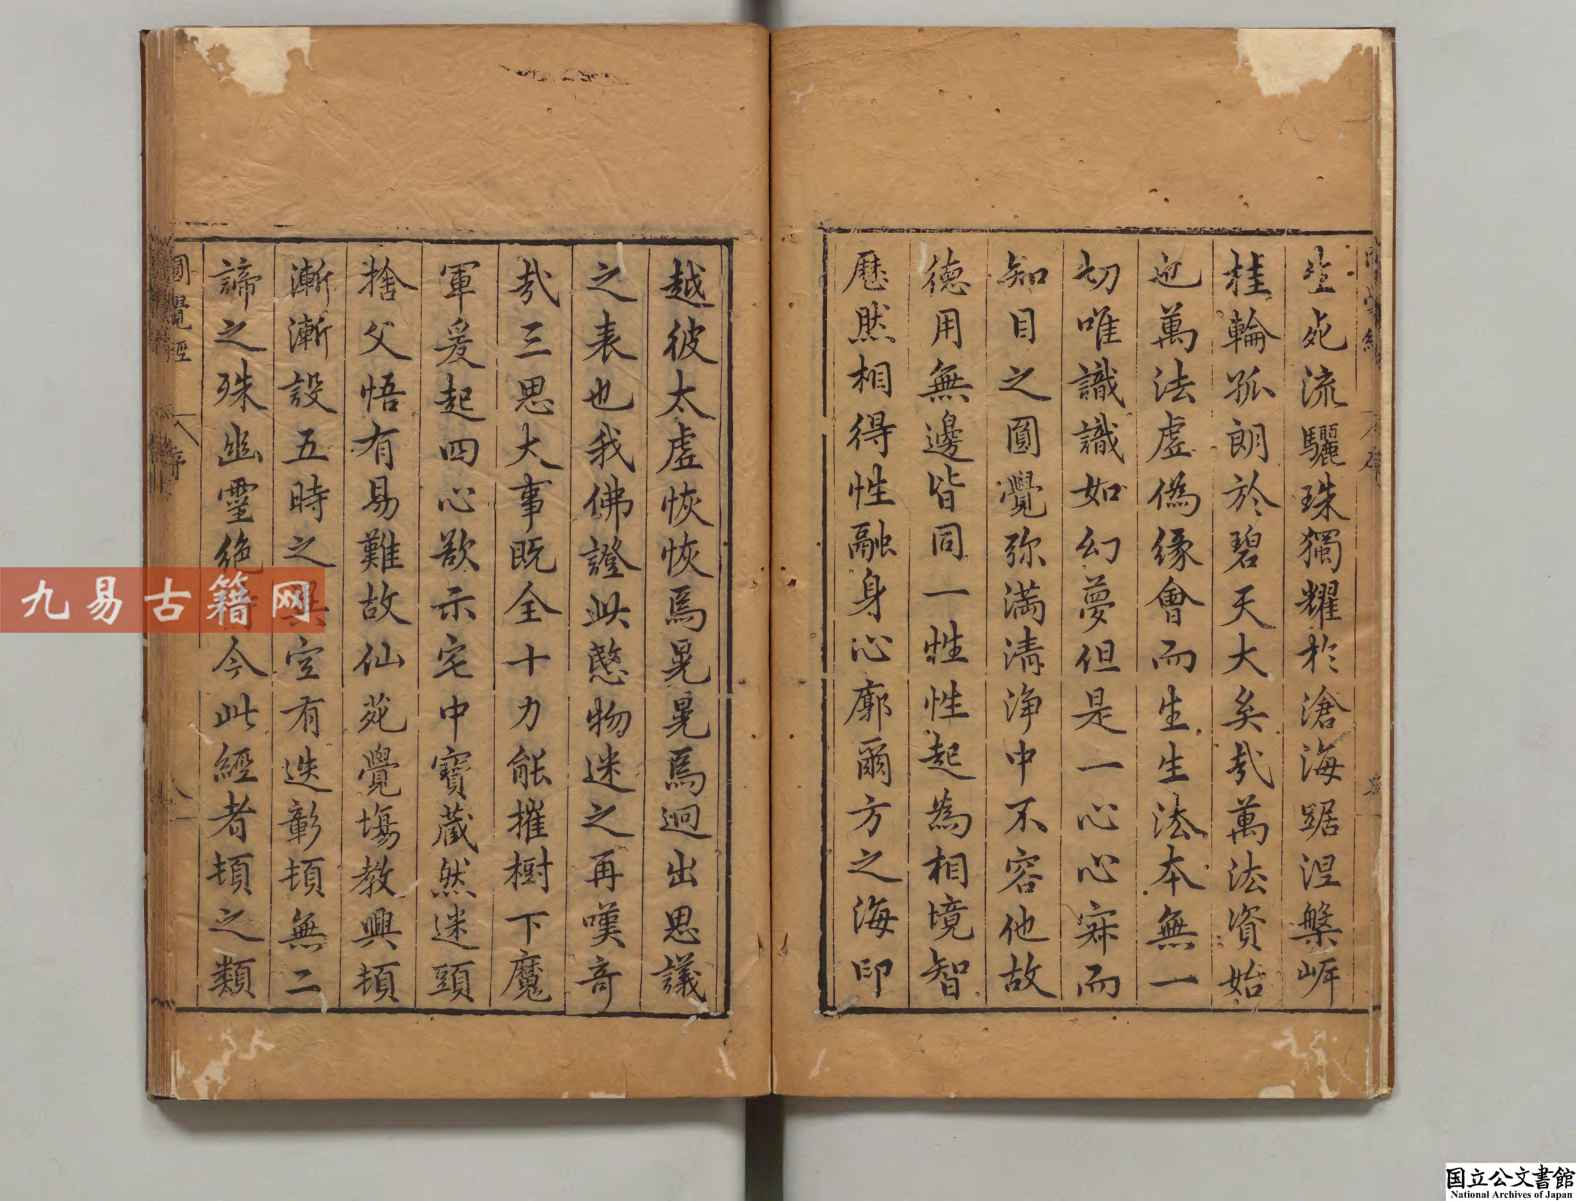 生死流驪珠獨耀於滄海踞涅槃岸
桂輪孤朗於碧天大矣哉萬法資始
也萬法虛偽緣會而生生法本無一
切唯識識如幻夢但是一心心寂而
知目之圓覺彌滿清淨中不容他故
德用無邊皆同一性性起為相境智
歷然相得性融身心廓爾方之海印
越彼太虛恢恢焉晃晃焉迥出思議
之表也我佛證此愍物迷之再嘆奇
哉三思大事既全十力能摧樹下魔
軍爰起四心欲示宅中寶藏然迷頭
捨父悟有易難故仙苑覺場教興頓
漸漸設五時之異空有迭彰頓無二
諦之殊幽靈絕今此經者頓之類
圓覺經
序
九易古籍网
国立公文書館
National Archives of Japan